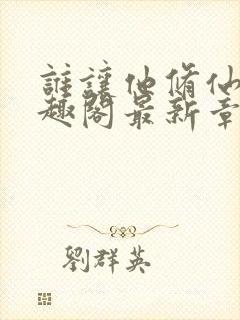 誰讓他脩仙
趣閣最新章
劉群英